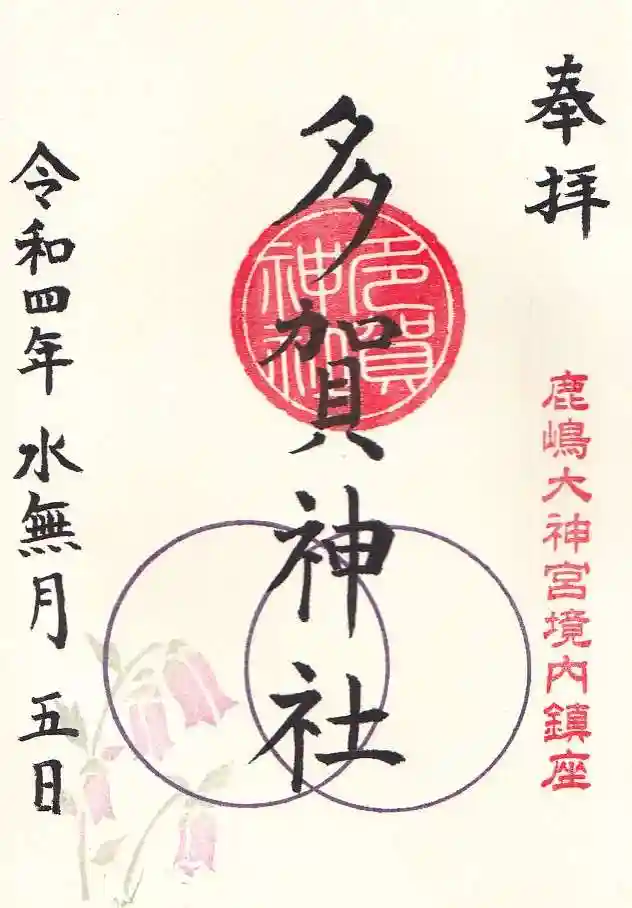 奉拝
鹿嶋大神宮境内鎮座
多賀神社
多賀神社
令和四年水無月五日